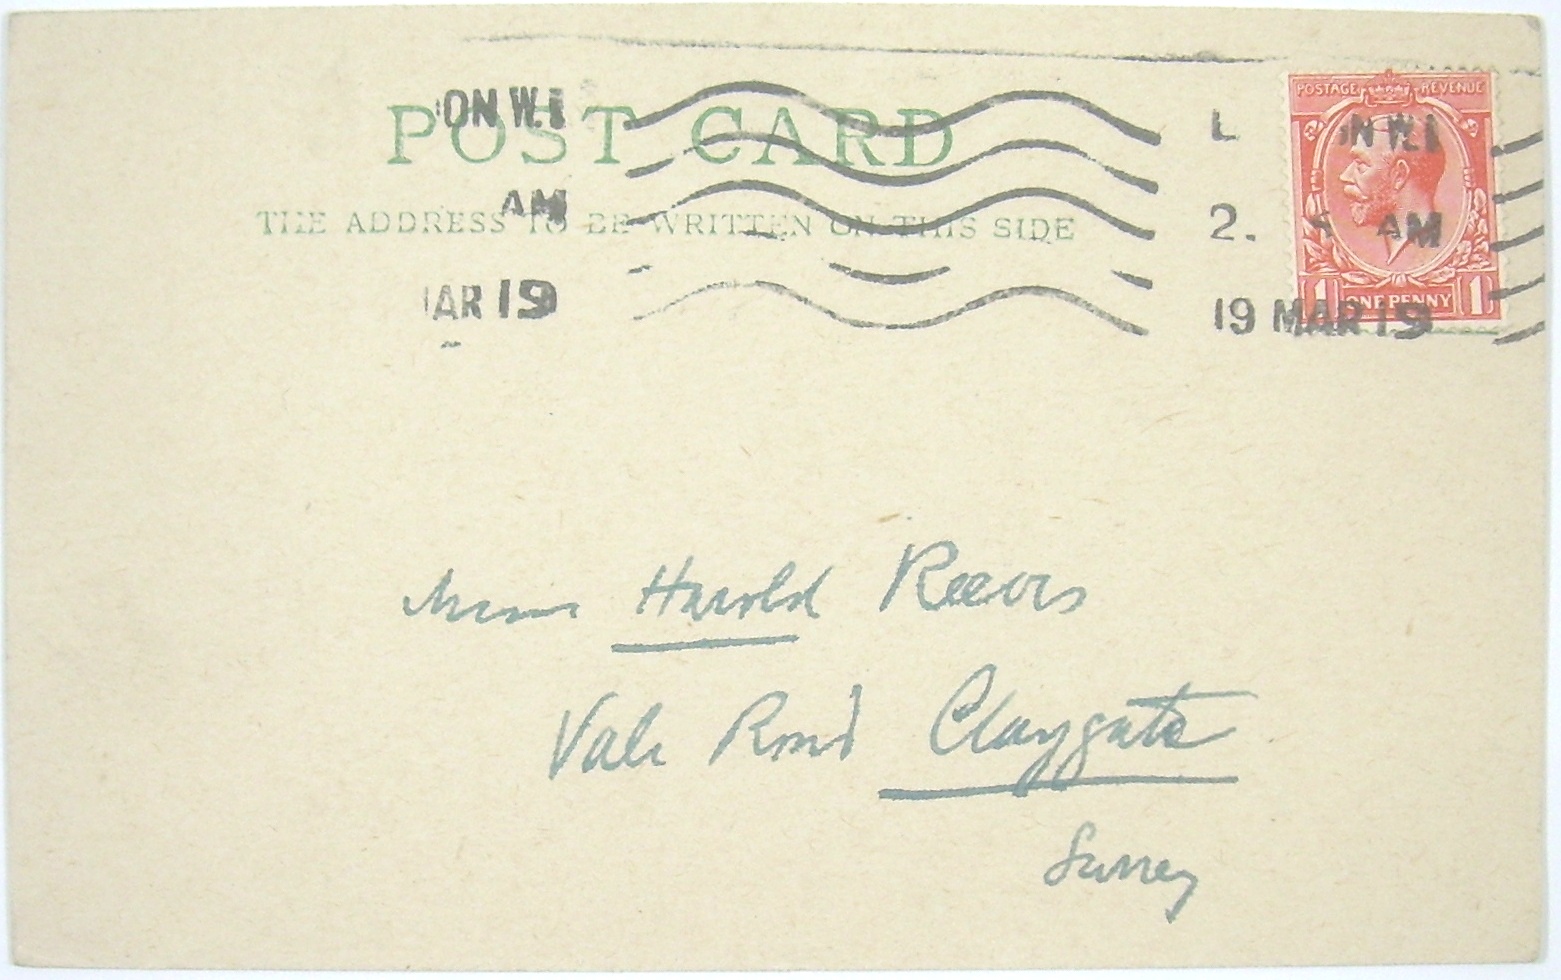 POST CARD
THE ADDRESS TO BE WRITTEN ON THIS SIDE
ON W.1
AM
AR 19
L ON W.1
2. AM
19 MAR 19
POSTAGE REVENUE
1 ONE PENNY 1
Harold Reeves
Vale Road Claygate
Surrey